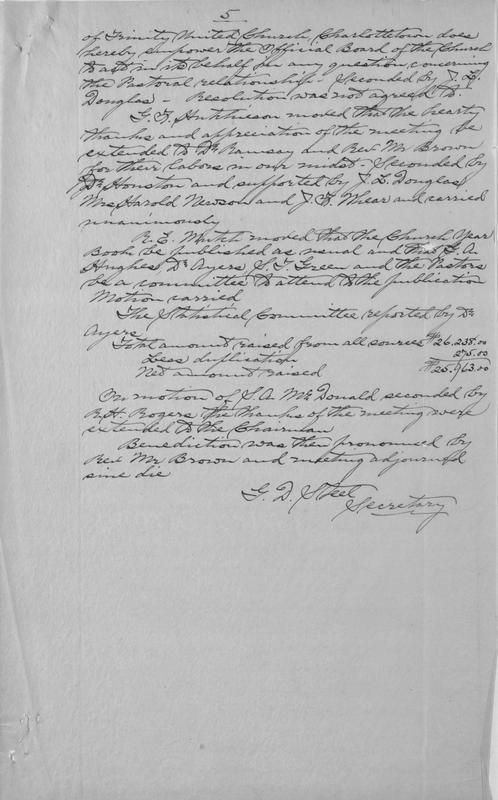 5
of Trinity United Church, Charlottetown does
hereby empower the Official Board of the Church
to act in its behalf in any question concerning
the Pastoral relationship. Seconded by J. L.
Douglas - Resolution was not agreed to.
G. F. Hutcheson moved that the hearty
thanks and appreciation of the meeting be
extended to Dr Ramsay and Rev Mr Brown
for their labors in our midst - Seconded by
Dr Houston and supported by J. L. Douglas,
Mrs Harold Newson and J. K. Whear and carried
unanimously
R. E. Mutch moved that the Church Year
Book be published as usual and that G. A.
Hughes, Dr Ayers, S. T. Green and the Pastors
be a committee to attend to the publication
Motion carried
The Statistical Committee reported by Dr
Ayers
Total amount raised from all sources $26.238.00
Less duplication 275.00
Net amount raised $25.963.00
On motion of S. A. McDonald seconded by
R. H. Rogers the thanks of the meeting were
extended to the Chairman
Benediction was then pronounced by
Rev Mr Brown and meeting adjourned
sine die
G. D. Steel
Secretary